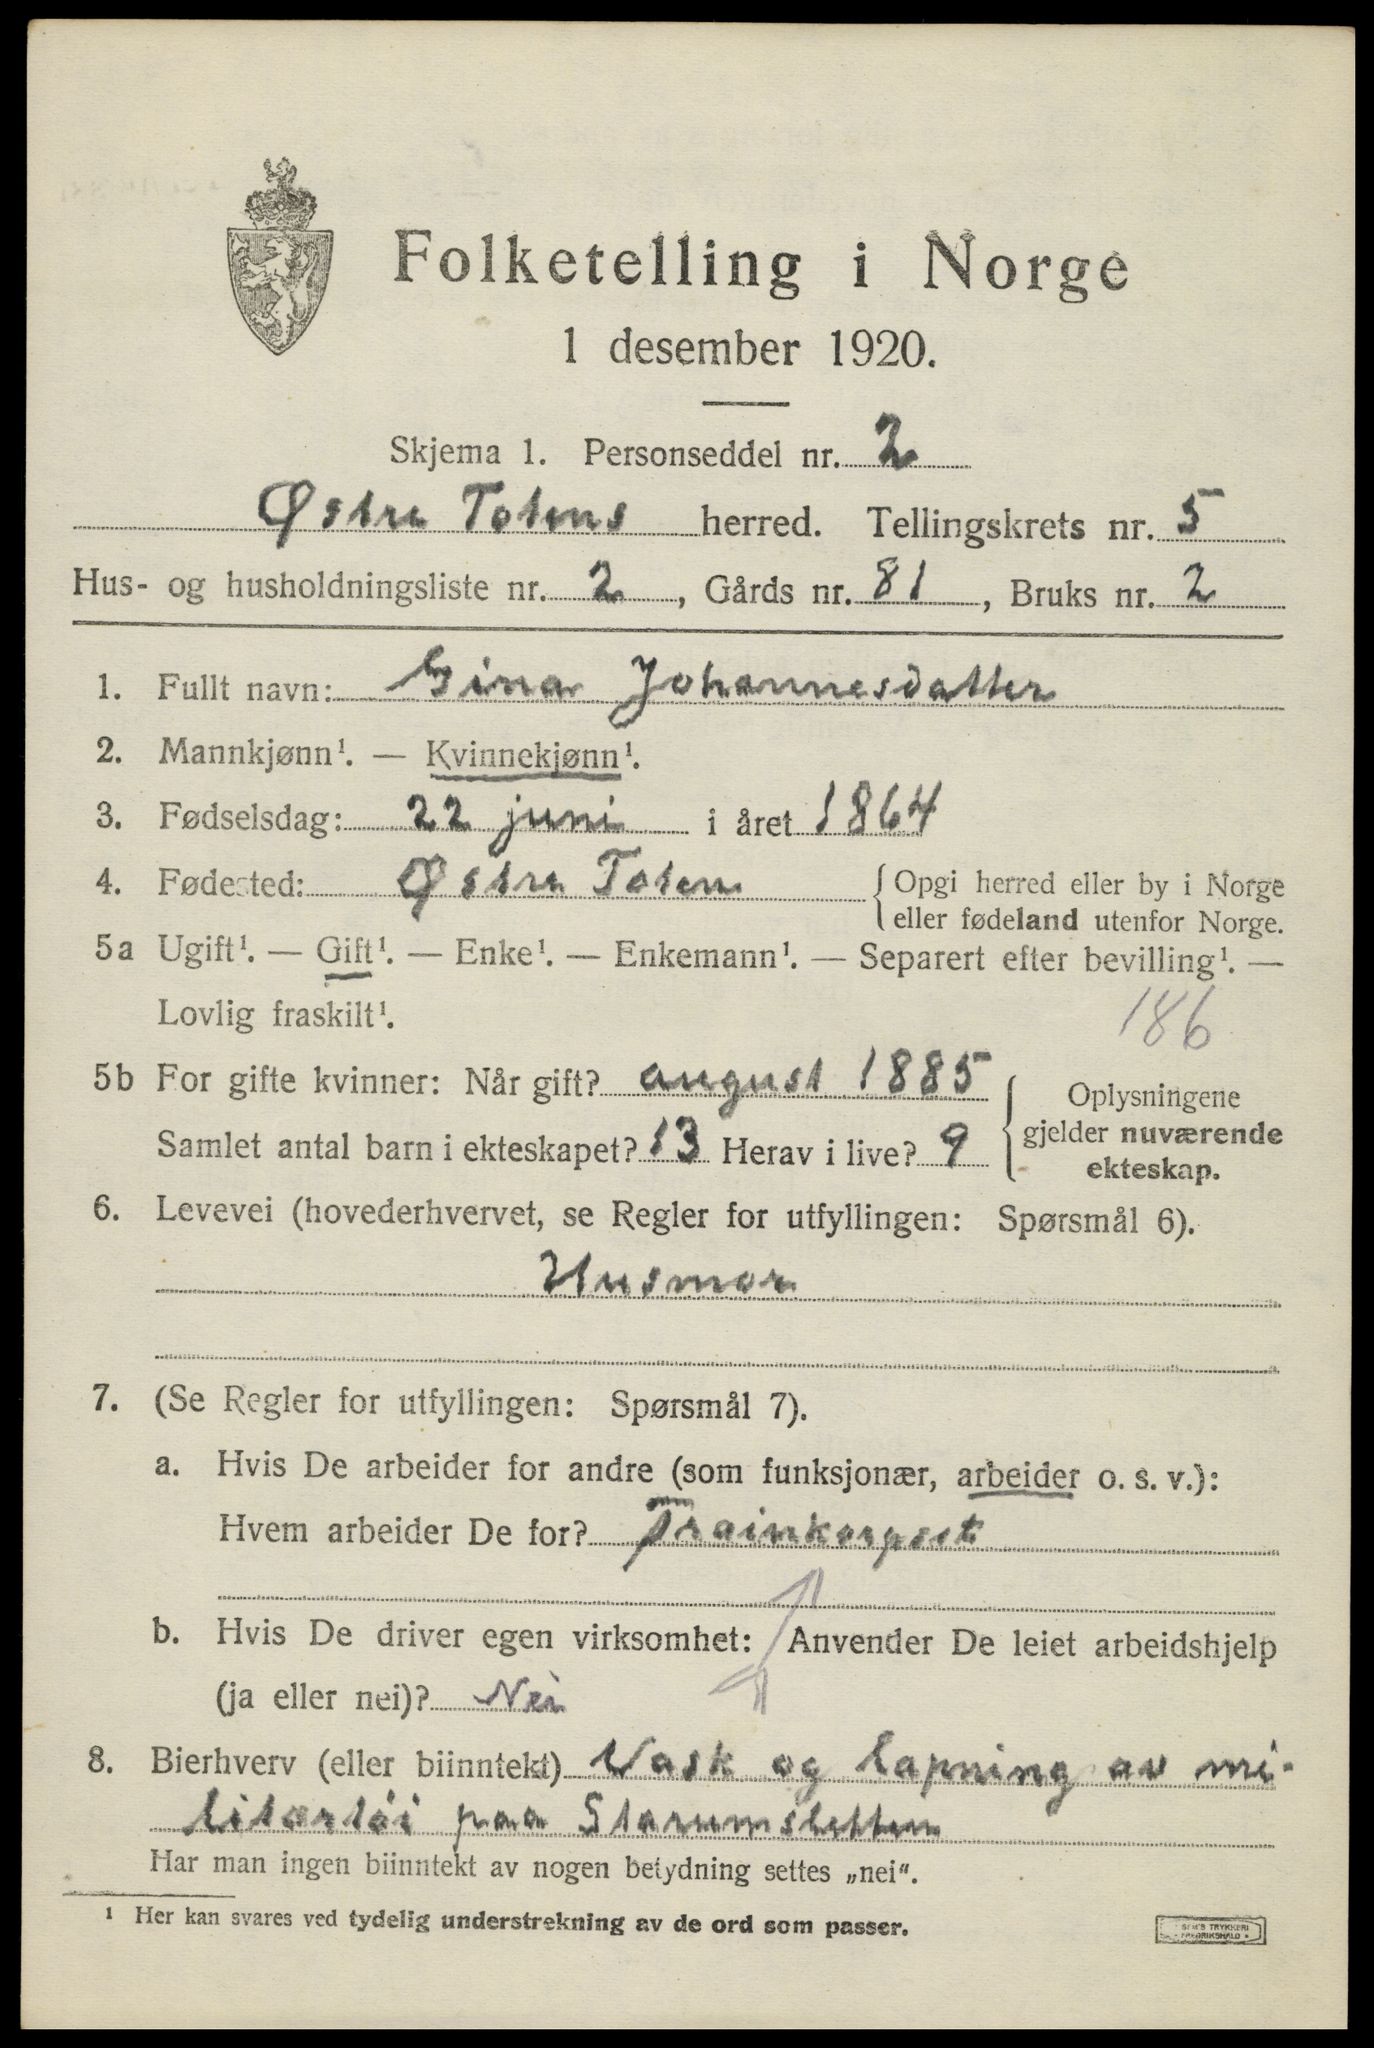 Folketelling i Norge
1 desember 1920.
Skjema 1. Personseddel nr. 2
Østre Totens herred. Tellingskrets nr. 5
Hus- og husholdningsliste nr. 2, Gårds nr. 81, Bruks nr. 2
1. Fullt navn: Gina Johannesdatter
2. Mannkjønn¹. — Kvinnekjønn¹.
3. Fødselsdag: 22 juni i året 1864
4. Fødested: Østre Toten {Opgi herred eller by i Norge
eller fødeland utenfor Norge.
5a Ugift¹. — Gift¹. — Enke¹. — Enkemann¹. — Separert efter bevilling¹. —
Lovlig fraskilt¹.
186
5b For gifte kvinner: Når gift? august 1885
Samlet antal barn i ekteskapet? 13 Herav i live? 9
Oplysningene
gjelder nuværende
ekteskap.
6. Levevei (hovederhvervet, se Regler for utfyllingen: Spørsmål 6).
Husmor
7. (Se Regler for utfyllingen: Spørsmål 7).
a. Hvis De arbeider for andre (som funksjonær, arbeider o. s. v.):
Hvem arbeider De for? Trainkorpset
b. Hvis De driver egen virksomhet: Anvender De leiet arbeidshjelp
(ja eller nei)? Nei
8. Bierhverv (eller biinntekt) Vask og lapning av mi-
litærtöi paa Starumsletten
Har man ingen biinntekt av nogen betydning settes „nei“.
¹ Her kan svares ved tydelig understrekning av de ord som passer.
SEM'S TRYKKERI
FREDRIKSHALD